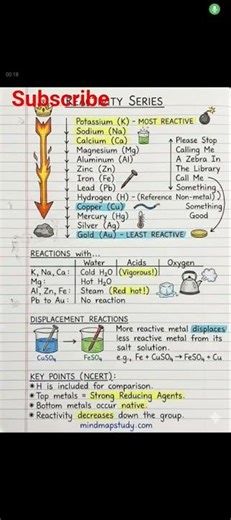 00:18
Subscribe
REACTIVITY SERIES
Potassium (K) - MOST REACTIVE
Sodium (Na)
Calcium (Ca)
Magnesium (Mg)
Aluminum (Al)
Zinc (Zn)
Iron (Fe)
Lead (Pb)
Hydrogen (H) - (Reference Non-metal)
Copper (Cu)
Mercury (Hg)
Silver (Ag)
Gold (Au) - LEAST REACTIVE
Please Stop
Calling Me
A Zebra In
The Library
Call Me
Something
Something
Good
REACTIONS with...
Water Acids Oxygen
K, Na, Ca: Cold H₂O (Vigorous!)
Mg: Hot H₂O
Al, Zn, Fe: Steam (Red hot!)
Pb to Au: No reaction
DISPLACEMENT REACTIONS
CuSO₄ FeSO₄
More reactive metal displaces
less reactive metal from its
salt solution.
e.g., Fe + CuSO₄ → FeSO₄ + Cu
KEY POINTS (NCERT):
* H is included for comparison.
* Top metals = Strong Reducing Agents.
* Bottom metals occur native.
* Reactivity decreases down the group.
mindmapstudy.com